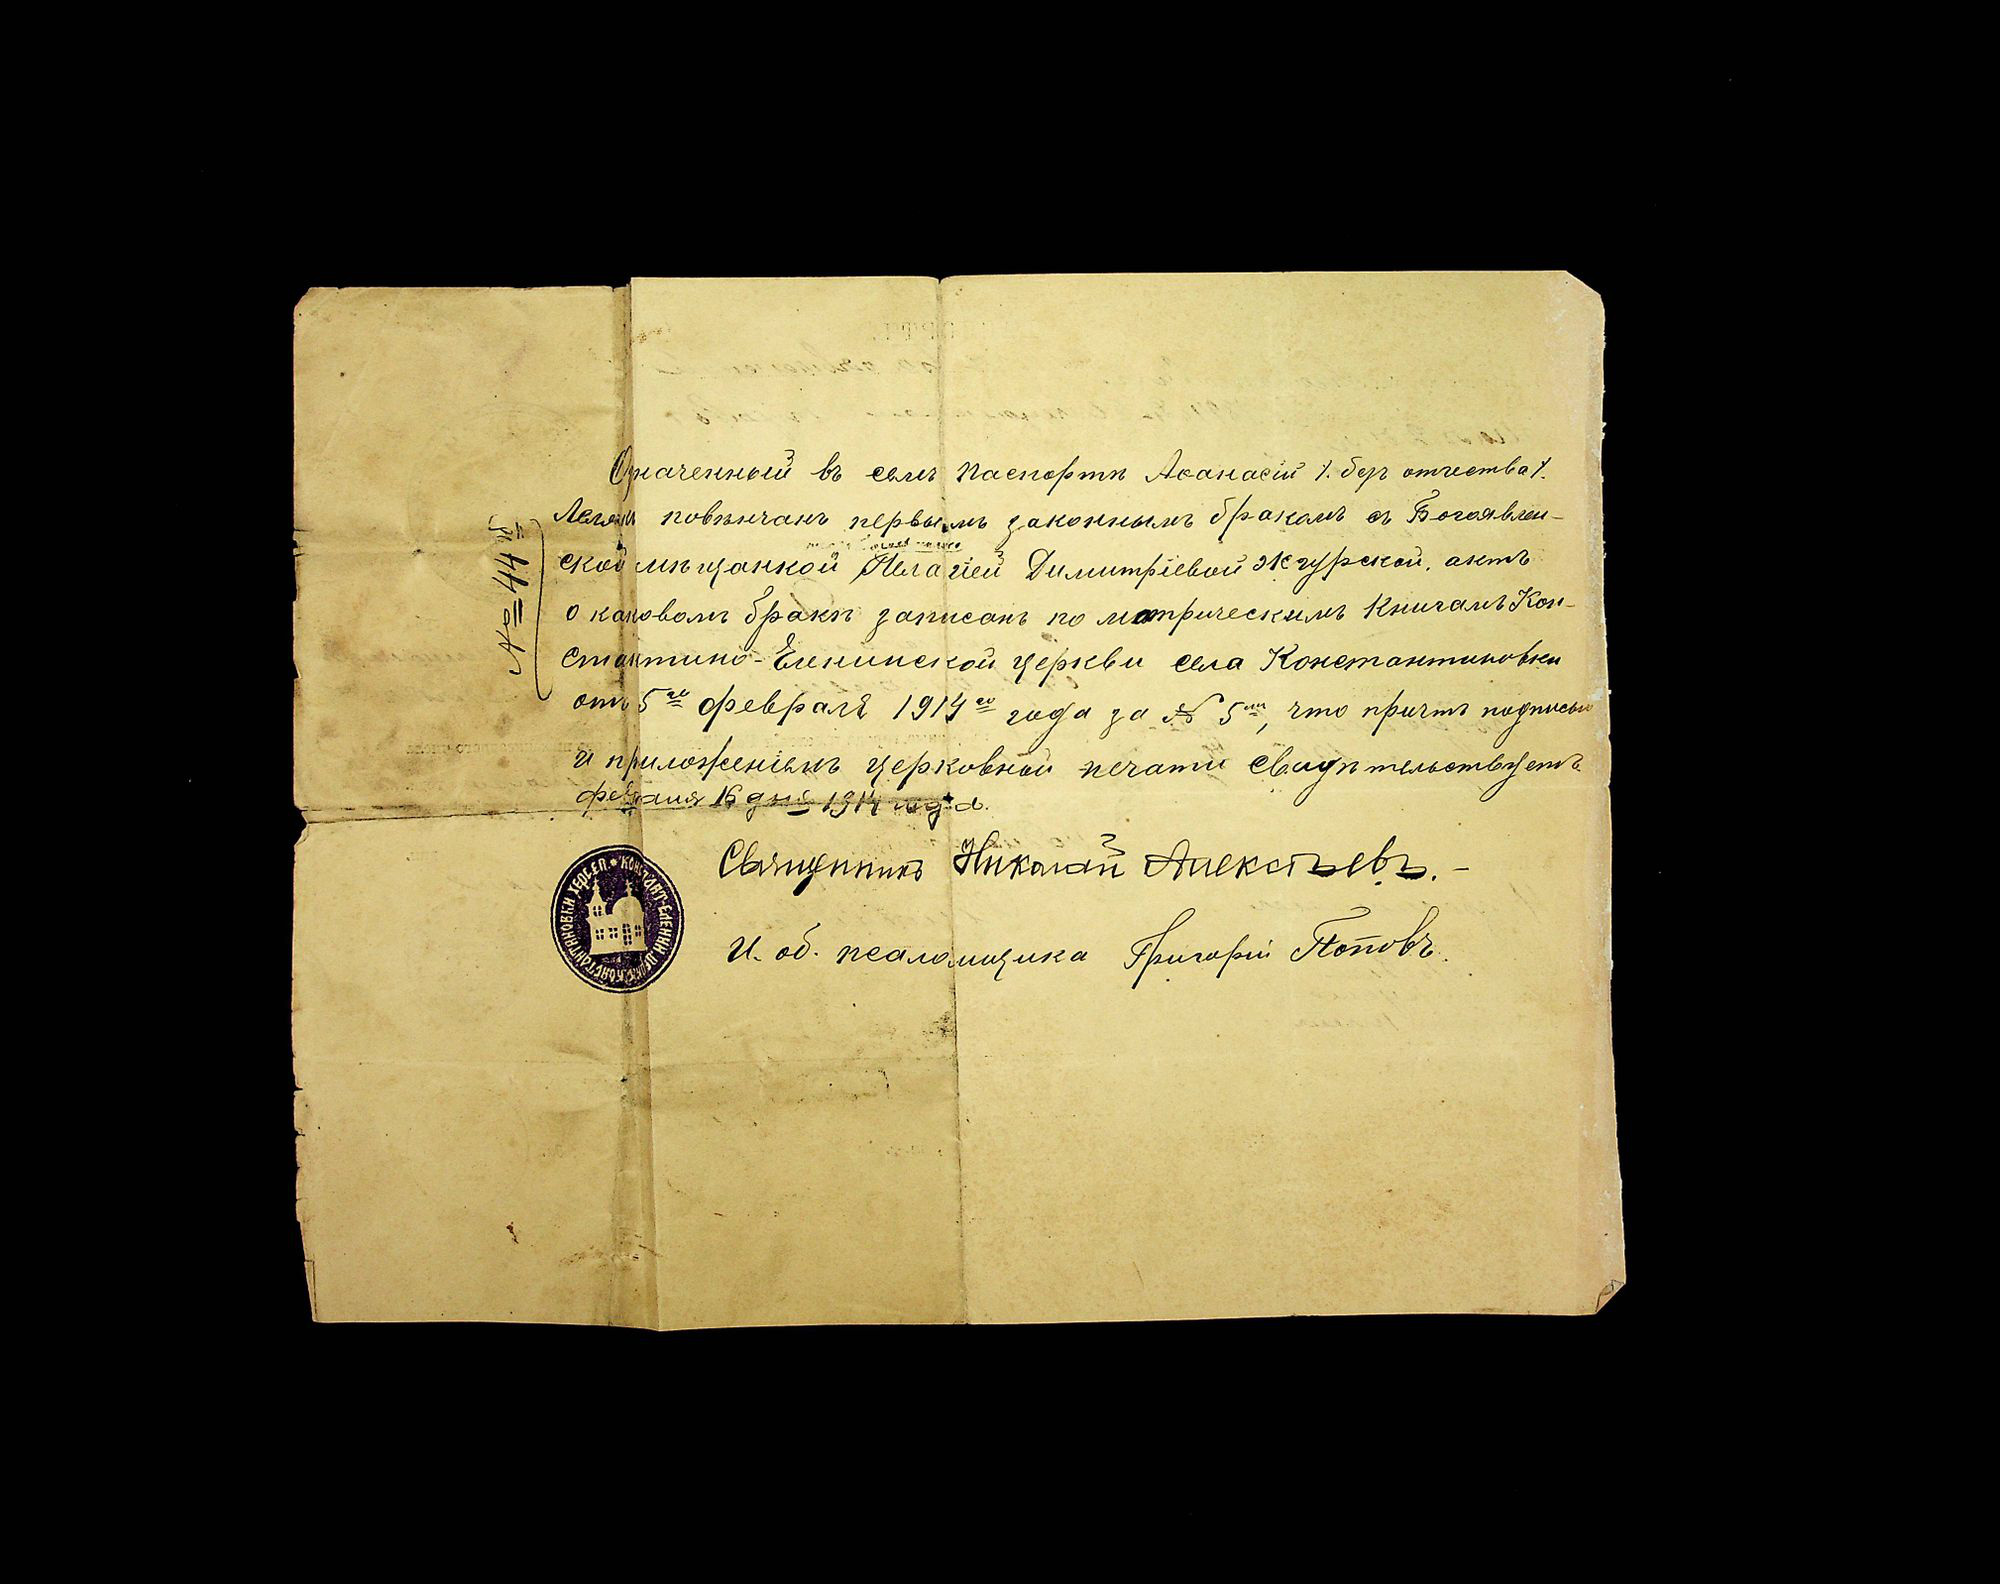 Означенный въ семъ паспортѣ Аѳанасій /. безъ отчества /.
повѣнчанъ первымъ законнымъ бракомъ съ Богоявлен-
ской мѣщанкой Пелагіей Димитріевой Жгурской, актъ
о каковомъ бракѣ записанъ по метрическимъ книгамъ Кон-
стантино-Еленинской церкви села Константиновки
отъ 5го февраля 1914го года за № 5мъ, что причтъ подписью
и приложеніемъ церковной печати свидѣтельствуетъ
февраля 16 дня 1914 года.
Священникъ Николай Алексѣевъ. -
И. об. псаломщика Григорій Поповъ.
№ 44
КОНСТАНТ-ЕЛЕНИН ЦЕРК. С. КОНСТАНТИНОВКИ ХЕРС. ЕП.